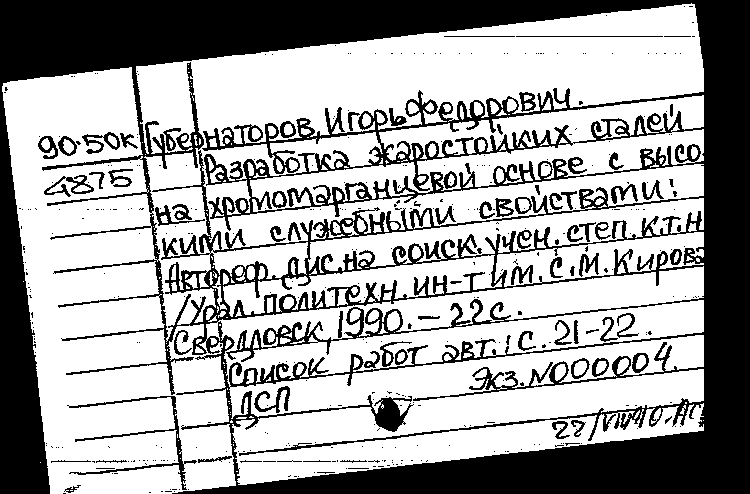 90-50к Губернаторов, Игорь Федорович.
4875 Разработка жаростойких сталей
на хромомарганцевой основе с высо
кими служебными свойствами:
Автореф. дис. на соиск. учен. степ. к.т.н
/Урал. политехн. ин-т им. С.М. Кирова
Свердловск, 1990. - 22 с.
Список работ авт.: с. 21-22.
ДСП Экз. N000004.